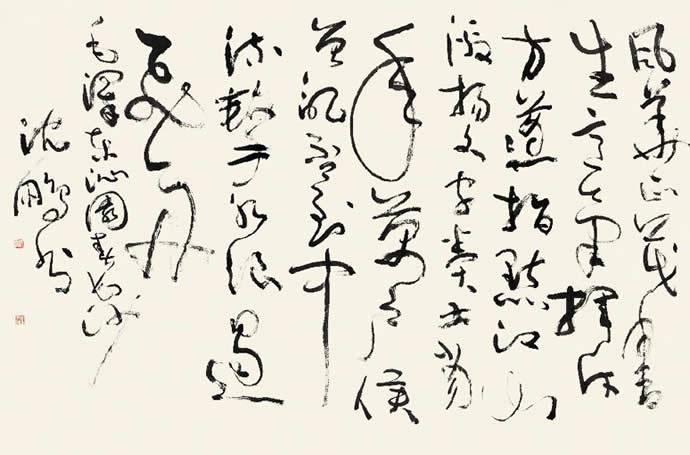 風華正茂書
生意氣揮斥
方遒指點江山
激揚文字糞土當
年萬户侯
曾記否到中
流擊水浪遏
飛舟
毛澤東沁園春長沙
沈鵬書